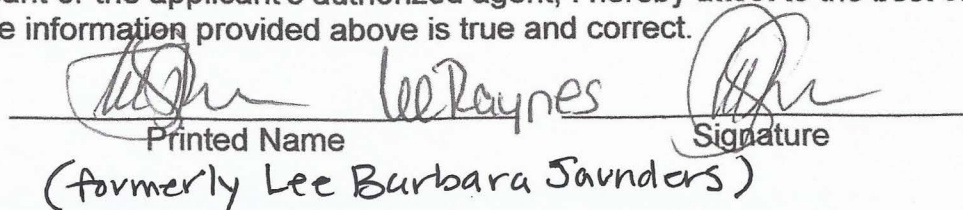 ant or the applicant's authorized agent, I hereby attest to the best of
e information provided above is true and correct.
Lee Raynes
Printed Name Signature
(formerly Lee Barbara Saunders)